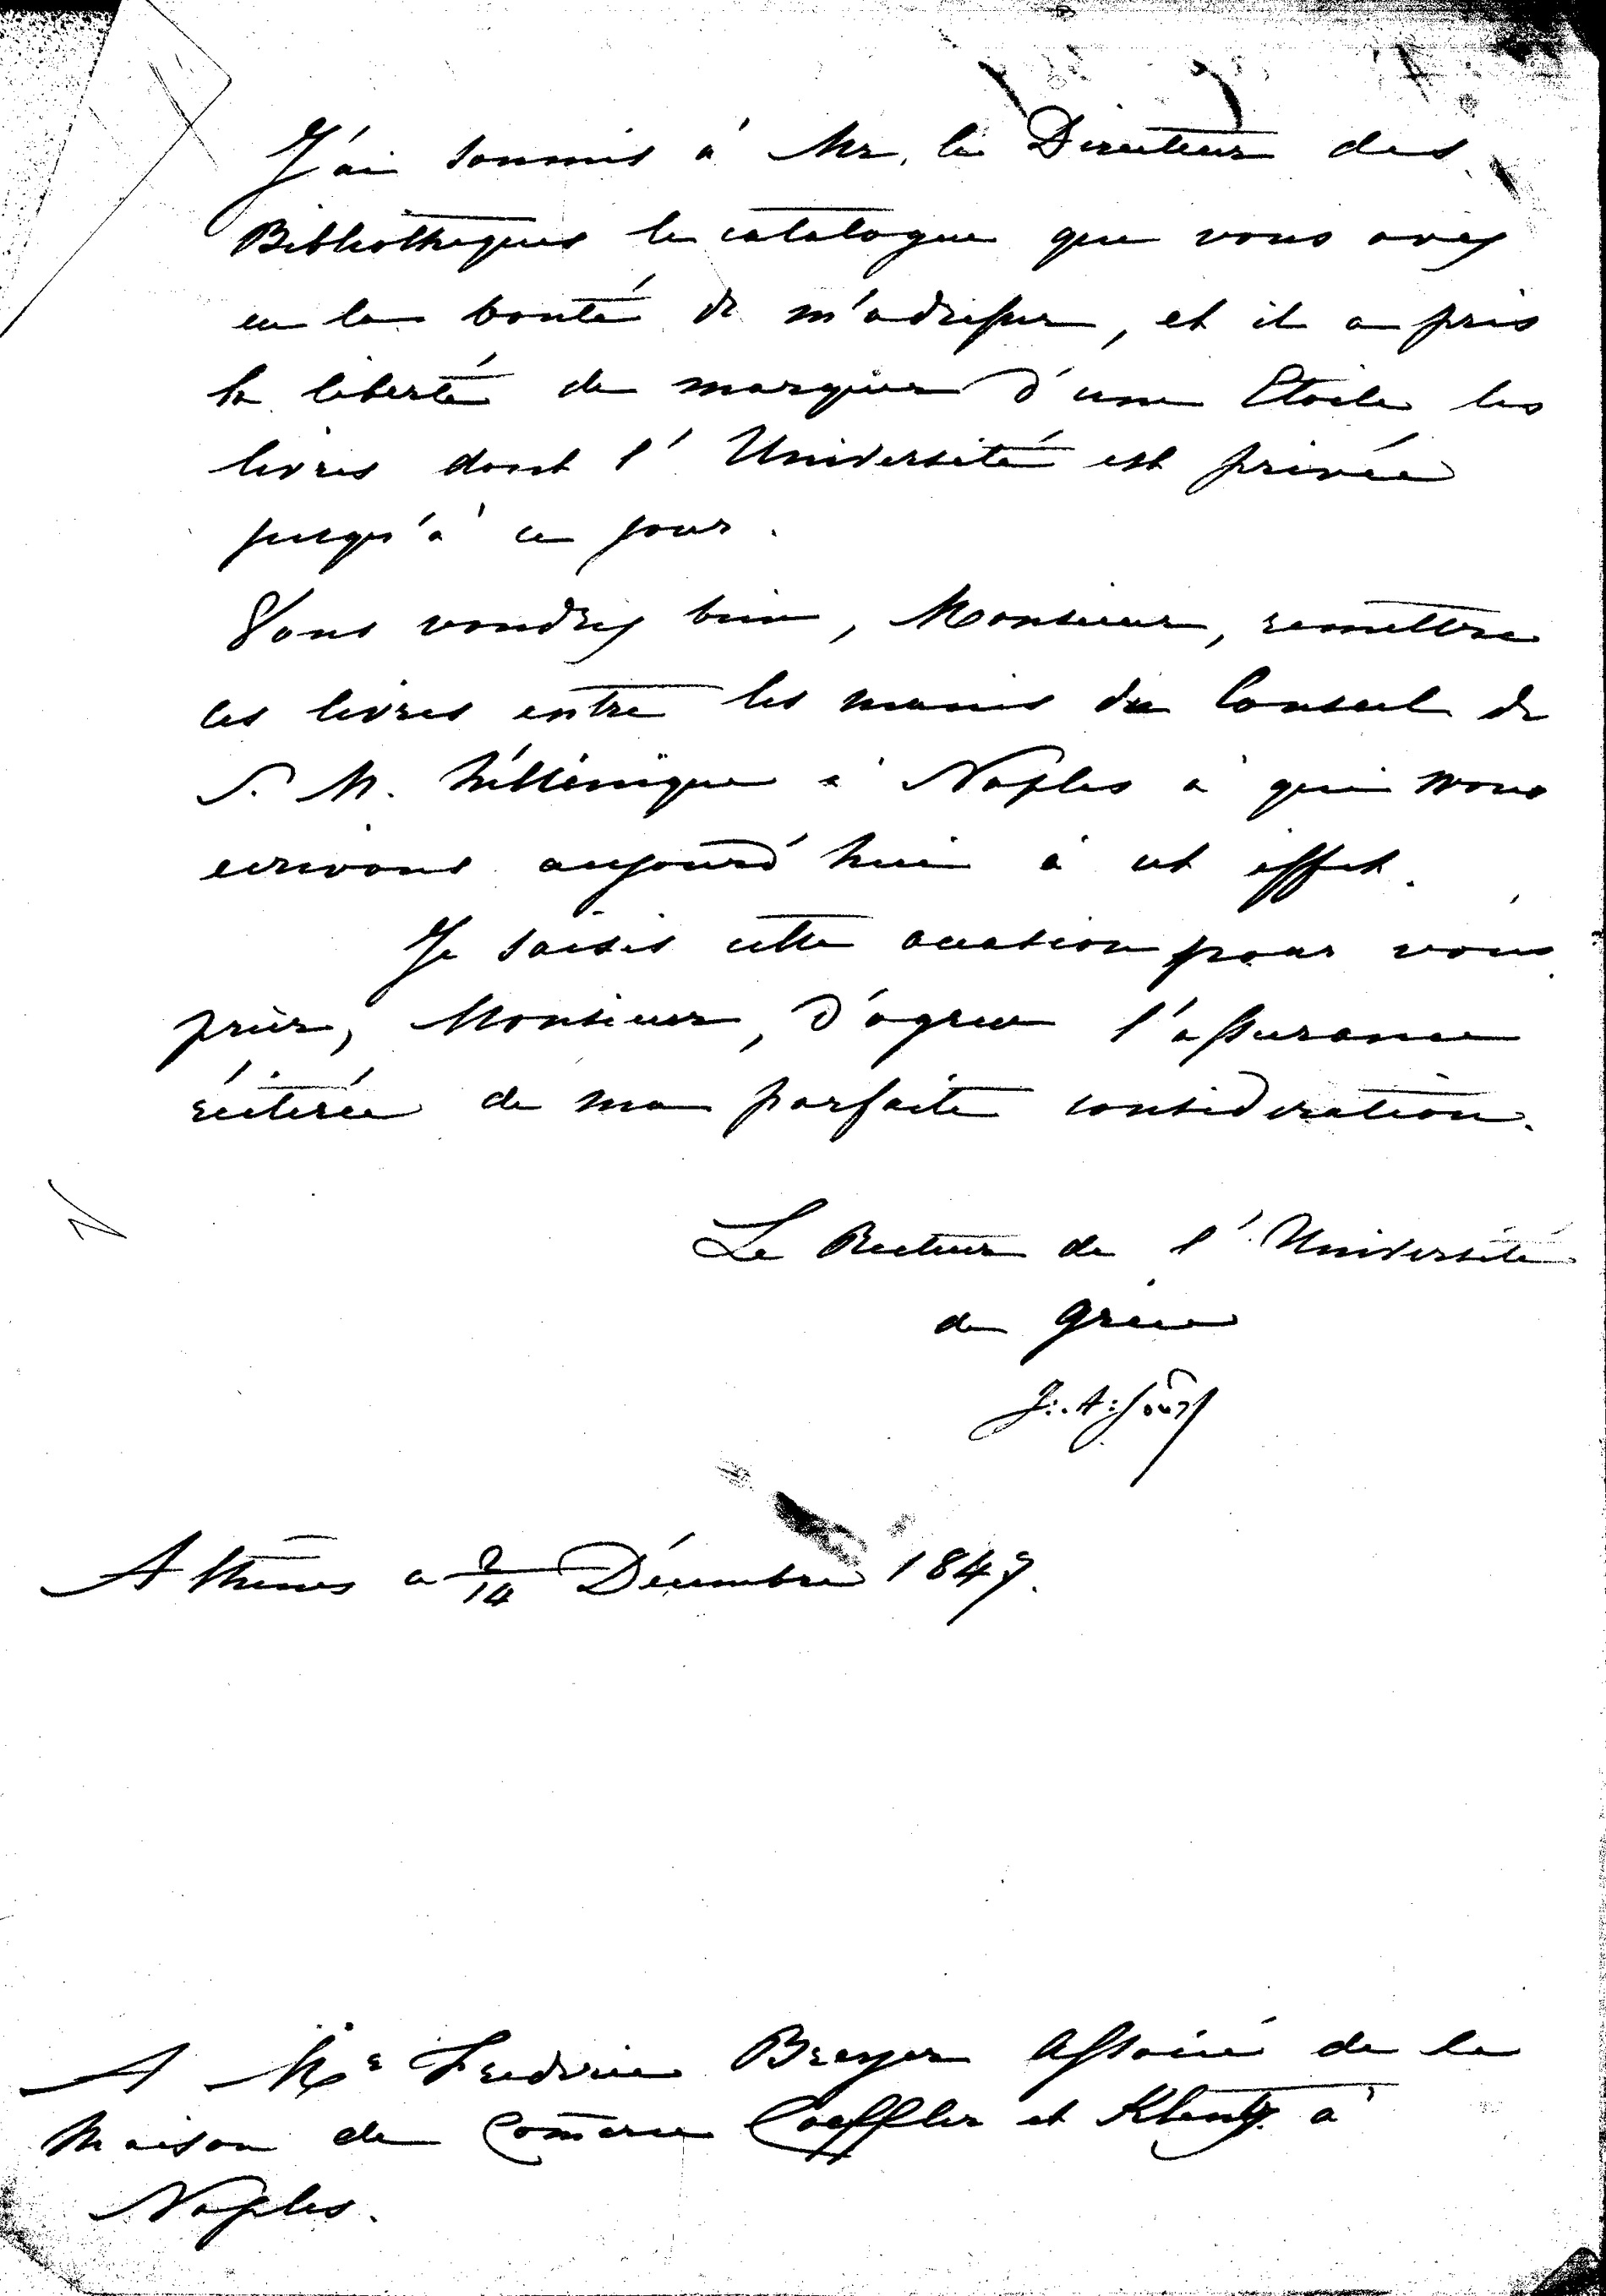 J'ai soumis à Mr. le Directeur des
Bibliothèques le catalogue que vous avez
eu la bonté de m'adresser, et il a pris
la liberté de marquer d'une Etoile les
livres dont l'Université est privée
jusqu'à ce jour.
Vous voudrez bien, Monsieur, remettre
ces livres entre les mains du Consul de
S. M. héllénique à Naples à qui nous
ecrivons aujourd'hui à cet effet.
Je saisis cette occasion pour vous
prier, Monsieur, d'agreer l'assurance
réiterée de ma parfaite consideration.
Le Recteur de l'Université
de Grèce
Athènes a 2/14 Décembre 1847.
A Mr Frederic Breyer Associé de la
Maison de Comerce Coeffler et Klentz à
Naples.